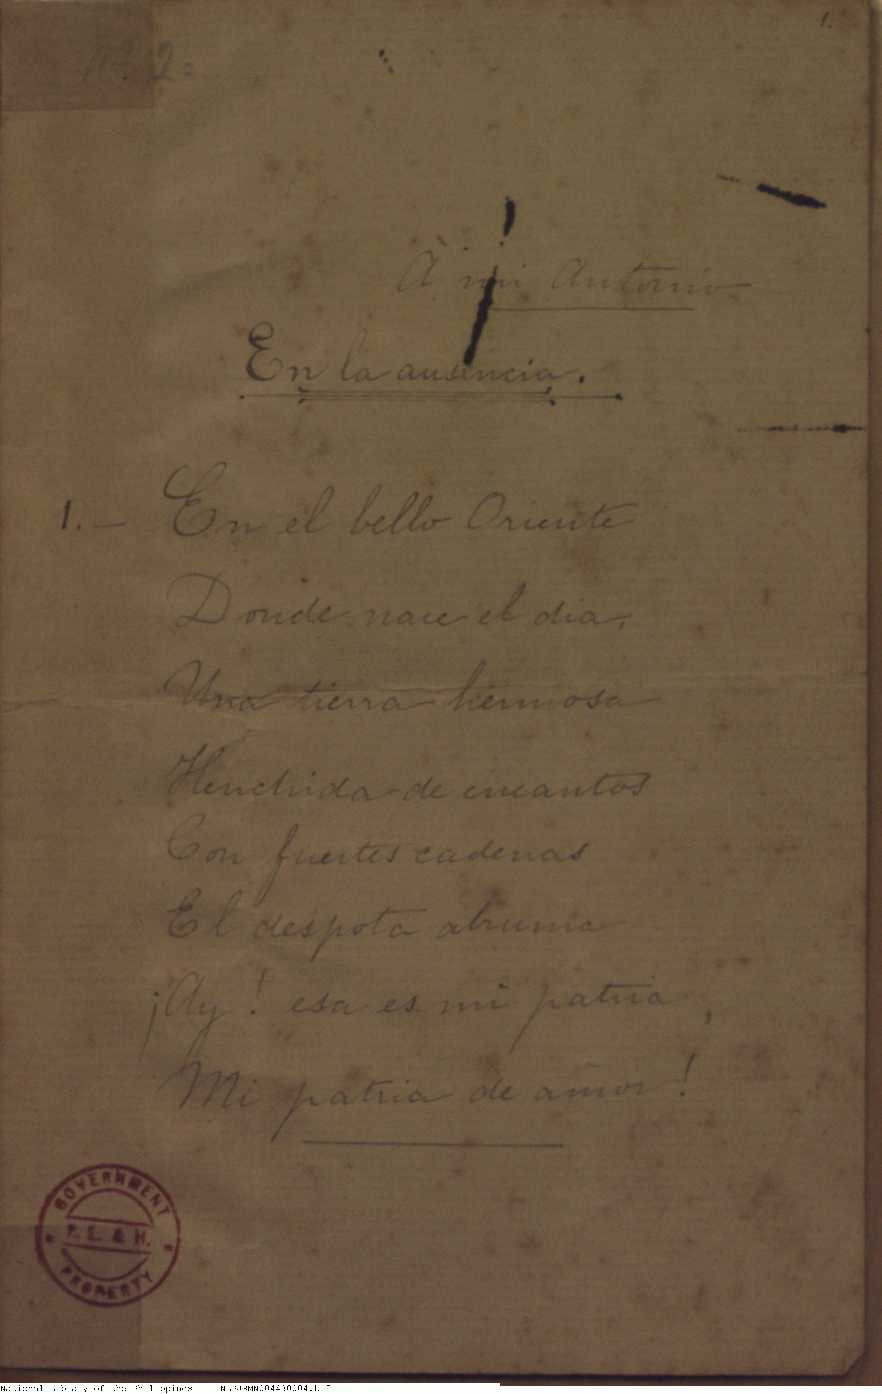 1.
Nº 2.
À mi Antonio
En la ausencia.
1.— En el bello Oriente
Donde nace el dia,
Una tierra hermosa
Henchida de encantos
Con fuertes cadenas
El despota abruma
¡Ay! esa es mi patria,
Mi patria de amor!
GOVERNMENT
P. L. & M.
PROPERTY
National Library of the Philippines